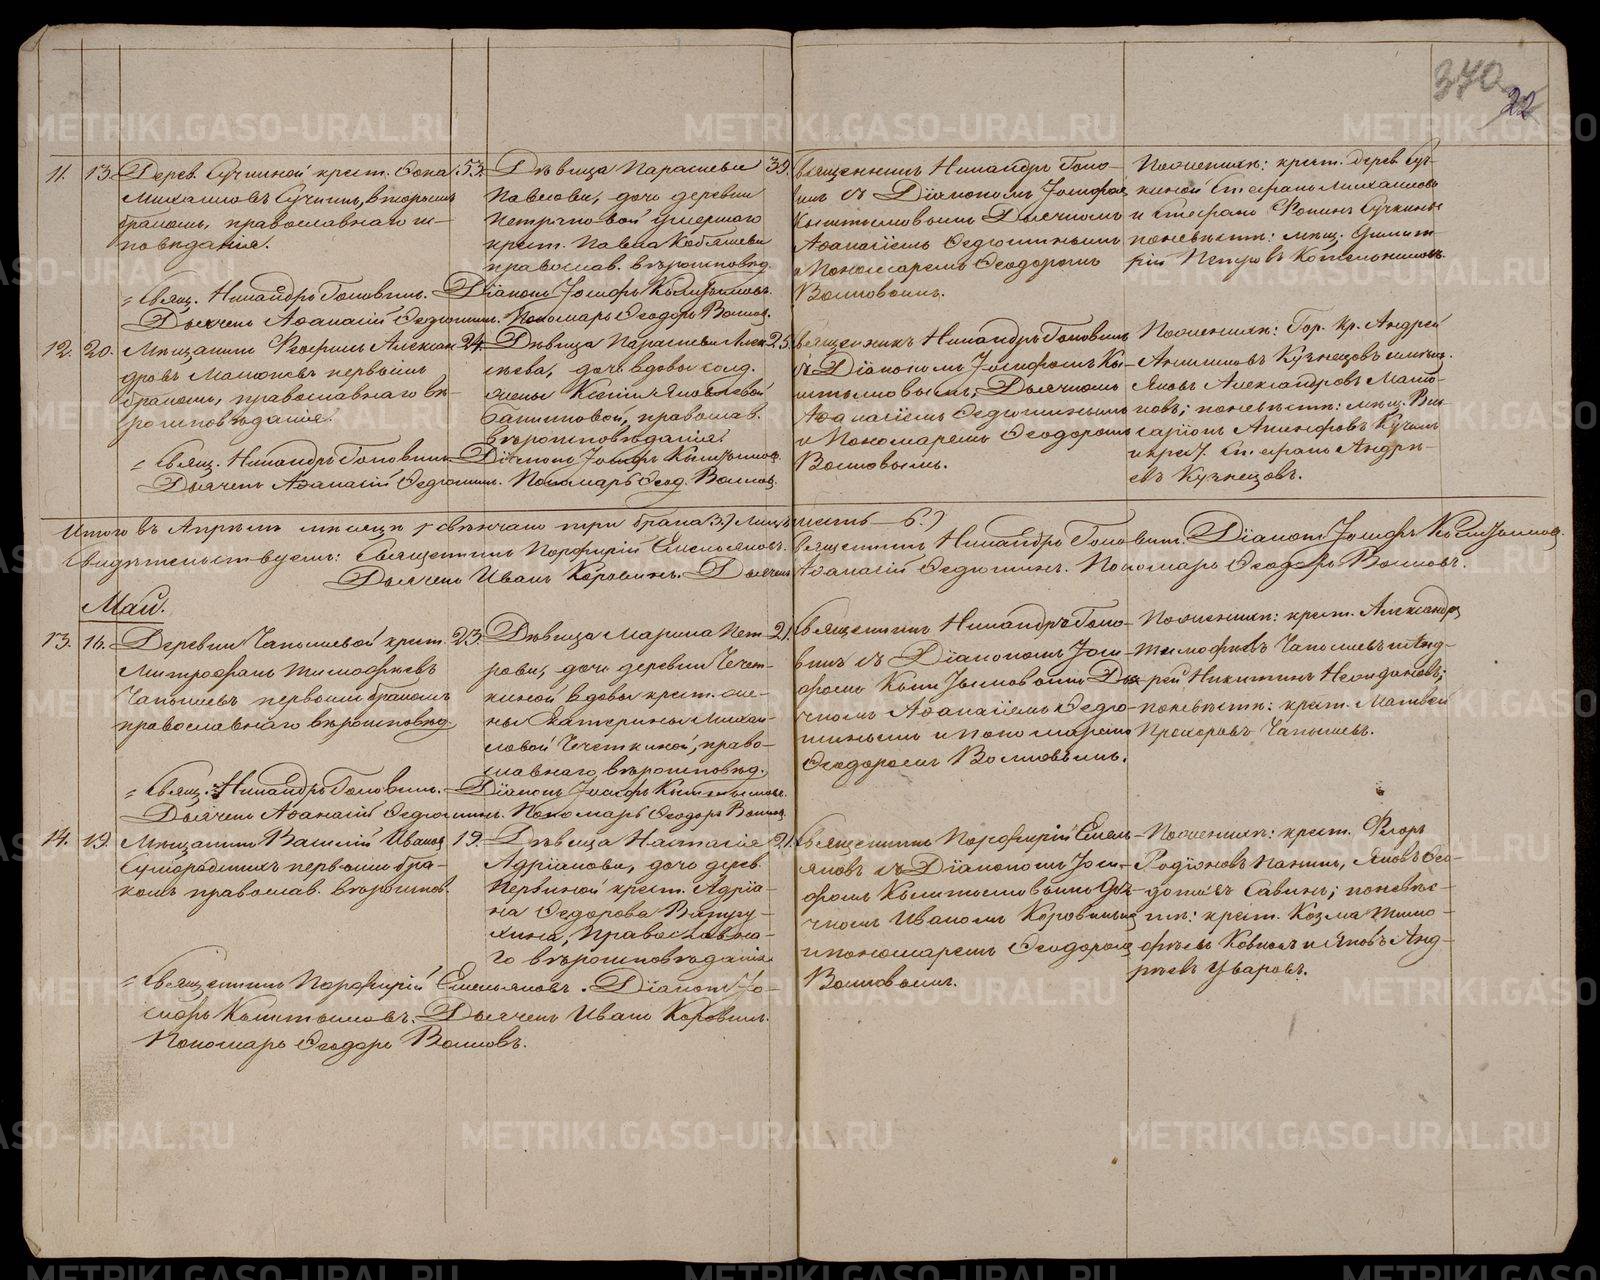 370
22
11. 13. Дерев. Сучкиной крест. Фока
Михаиловъ Сучкинъ, вторымъ
бракомъ, православнаго ис-
повѣданія.
53. Дѣвица Параскева
Павлова, дочь деревни
умершаго
крест. Павла
православ. вѣроисповѣд.
39. Священникъ Никандръ Голо-
винъ съ Діакономъ Іосифомъ
Кыштымовымъ Дьячкомъ
Аѳанасіемъ Ѳедюшинымъ
и Пономаремъ Ѳеодоромъ
Волковымъ.
Поженихѣ: крест. дерев. Суч-
киной Стефанъ Михаиловъ
и Стефанъ Фокинъ Сучкины
поневѣстѣ: мѣщ. Димит-
рій Петровъ Котельниковъ.
Свящ. Никандръ Головинъ. Діаконъ Іосифъ Кыштымовъ.
Дьячекъ Аѳанасій Ѳедюшинъ. Пономарь Ѳеодоръ Волков.
12. 20. Мѣщанинъ Ѳеофилъ Алексан-
дровъ первымъ
бракомъ, православнаго вѣ-
роисповѣданія.
24. Дѣвица Параскева Алек-
сѣева, дочь вдовы солд.
жены Ксеніи Яковлевой
православ.
вѣроисповѣданія.
25. Священникъ Никандръ Головинъ
съ Діакономъ Іосифомъ Кы-
штымовымъ, Дьячкомъ
Аѳанасіемъ Ѳедюшинымъ
и Пономаремъ Ѳеодоромъ
Волковымъ.
Поженихѣ: Гор. кр. Андрей
Кузнецовъ и мѣщ.
Яковъ Александровъ
поневѣстѣ: мѣщ. Вис-
сарiонъ
и крест. Стефанъ Андре-
евъ Кузнецовъ.
Свящ. Никандръ Головинъ Діаконъ Іосифъ Кыштымов.
Дьячекъ Аѳанасій Ѳедюшинъ. Пономарь Ѳеод. Волков.
Итого въ Апрѣлѣ мѣсяцѣ свѣнчано три брака 3.) Лицъ шесть 6.)
Свидѣтельствуемъ: Священникъ Порфирій Емельяновъ. Священникъ Никандръ Головинъ. Діаконъ Іосифъ Кыштымов.
Дьячекъ Иванъ Коровинъ. Дьячекъ Аѳанасій Ѳедюшинъ. Пономарь Ѳеодоръ Волковъ.
Май.
13. 16. Деревни Чапышевой крест.
Митрофанъ Тимофѣевъ
Чапышевъ первымъ бракомъ
православнаго вѣроисповѣд.
23. Дѣвица Марина Пет-
рова, дочь деревни Чечет-
киной вдовы крест. же-
ны Катерины Михаи-
ловой Чечеткиной, право-
славнаго вѣроисповѣд.
21. Священникъ Никандръ Голо-
винъ съ Діакономъ Іоси-
фомъ Кыштымовымъ Дья-
чкомъ Аѳанасіемъ Ѳедю-
шинымъ и пономаремъ
Ѳеодоромъ Волковымъ.
Поженихѣ: крест. Александръ
Тимофѣевъ Чапышевъ и Анд-
рей Никитинъ
поневѣстѣ: крест. Матвей
Прохоровъ Чапышевъ.
Свящ. Никандръ Головинъ. Діаконъ Іосифъ Кыштымовъ.
Дьячекъ Аѳанасій Ѳедюшинъ. Пономарь Ѳеодоръ Волков.
14. 19. Мѣщанинъ Василій Ивановъ
первымъ бра-
комъ православ. вѣроиспов.
19. Дѣвица Настасія
Адріанова, дочь дерев.
крест. Адріа-
на Ѳедорова
православна-
го вѣроисповѣданія.
21. Священникъ Порфирій Емель-
яновъ съ Діакономъ Іоси-
фомъ Кыштымовымъ Дья-
чкомъ Иваномъ Коровинымъ
и пономаремъ Ѳеодоромъ
Волковымъ.
Поженихѣ: крест. Флоръ
Родіоновъ Яковъ Ѳео-
Савинъ; поневѣс-
тѣ: крест. Козма Тимо-
фѣевъ и Яковъ Анд-
реевъ Уваровъ.
Священникъ Порфирій Емельяновъ. Діаконъ Іо-
сифъ Кыштымовъ. Дьячекъ Иванъ Коровинъ.
Пономарь Ѳеодоръ Волковъ.
METRIKI.GASO-URAL.RU